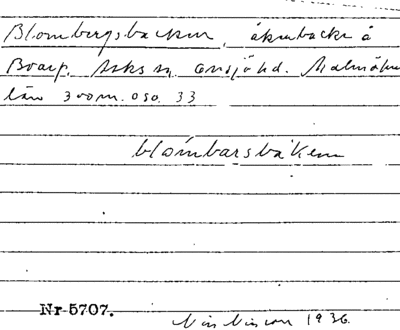 Blombergsbacken, åkerbacke å
Boarp. Asks sn, Onsjö hd. Malmöhus
län 300 m. oso. 33
blómbarsbaken
Nr 5707.
1936